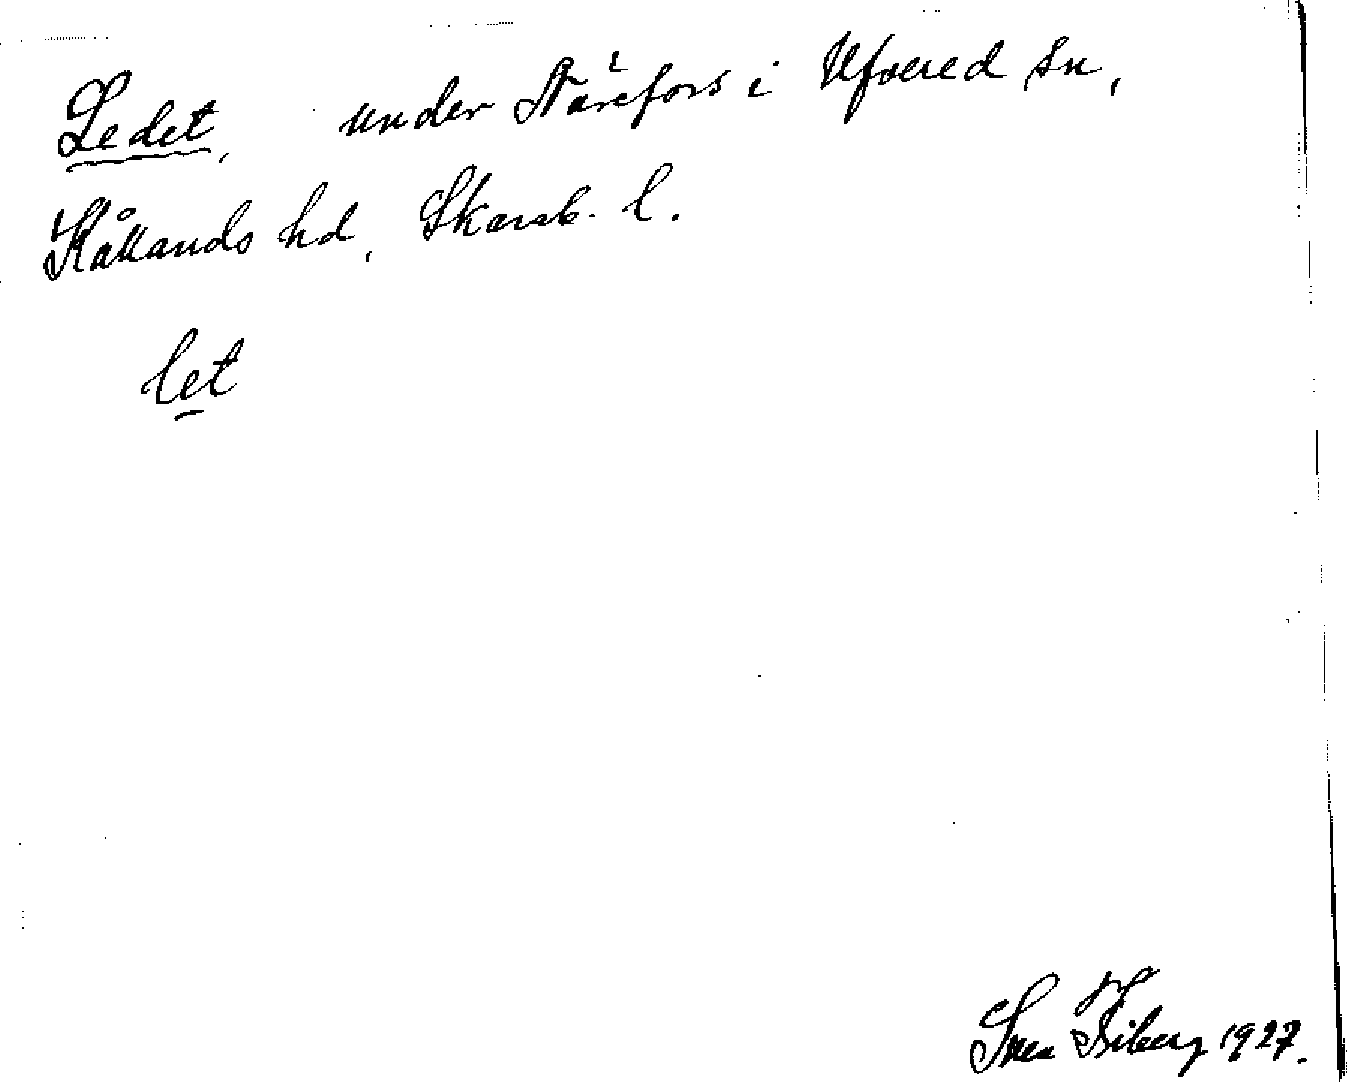 Ledet, under Stårefors i Ufvered sn,
Kållands hd, Skarab. l.
let
Sven Fiberg 1927.